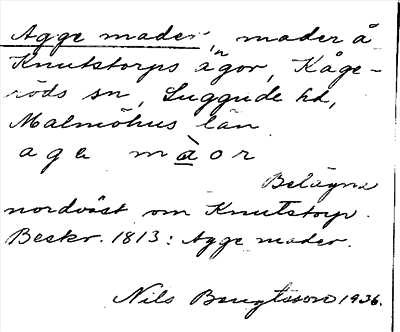 Agge mader, mader å
Knutstorps ägor, Kåge-
röds sn, Luggude hd,
Malmöhus län
aga màor
Belägna
nordväst om Knutstorp.
Beskr. 1813: Agge mader.
Nils Bengtsson 1936.